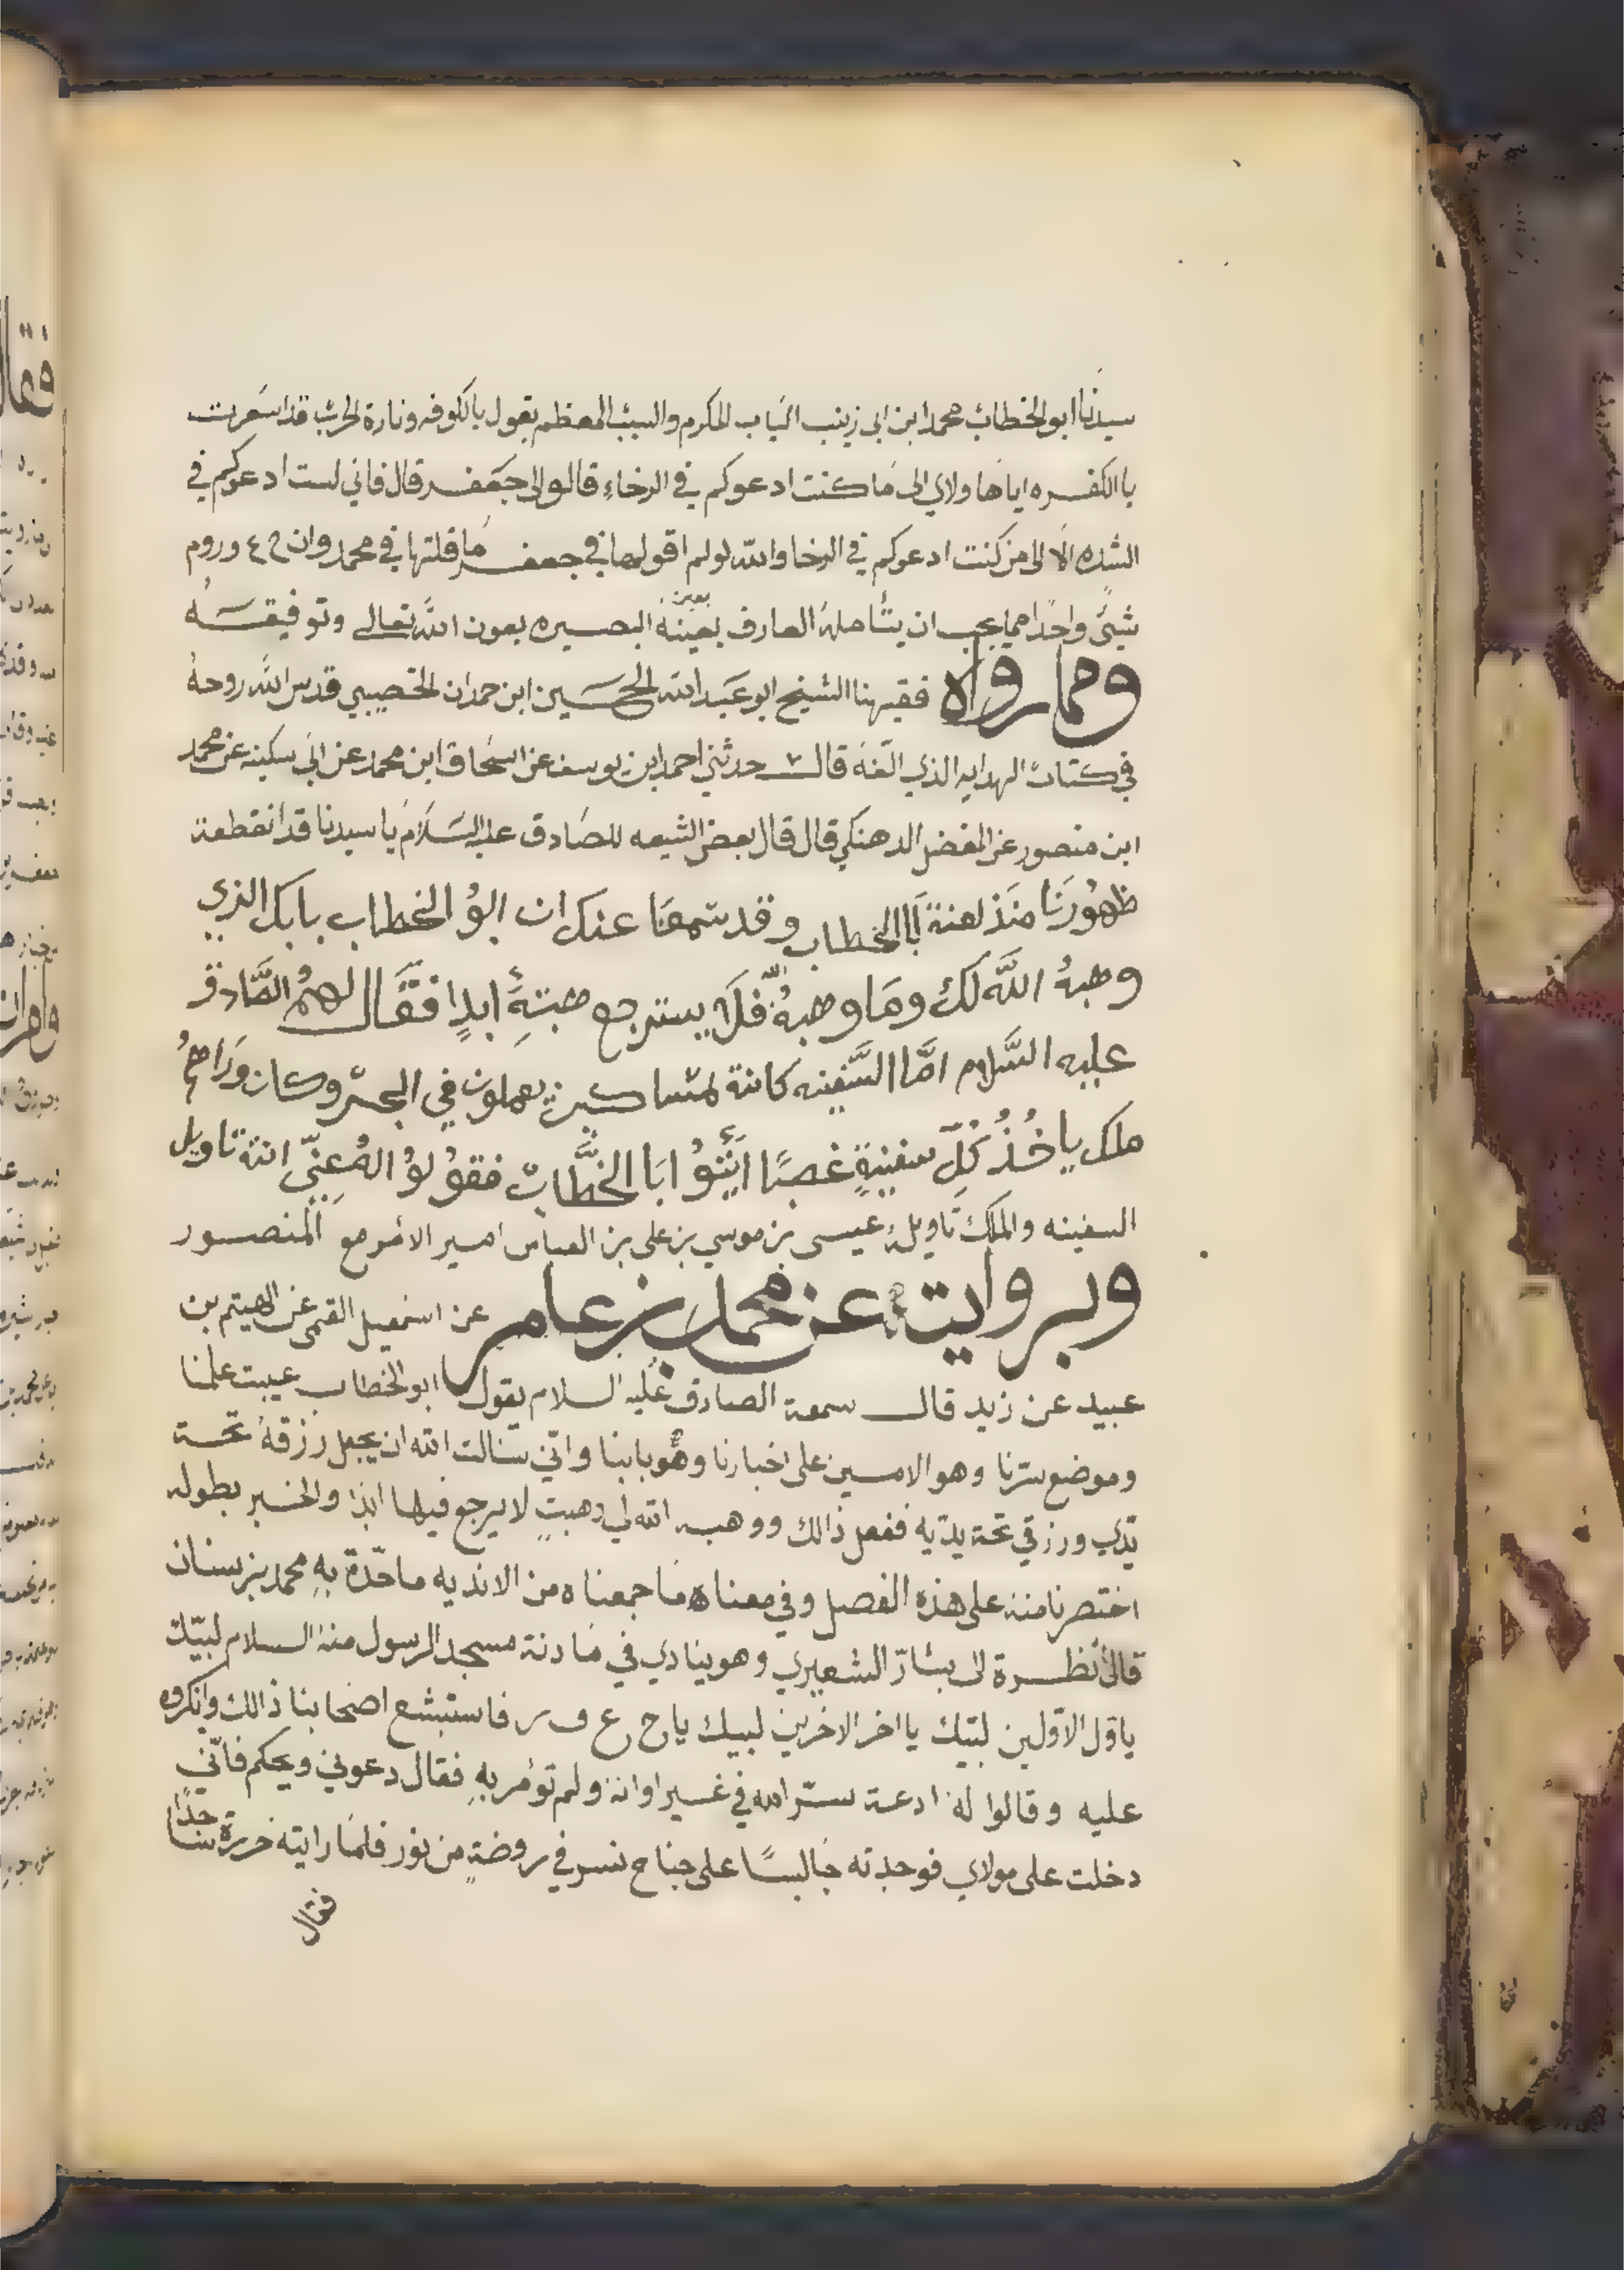 سيدنا ابو الخطاب محمد ابن ابي زينب الباب المكرم والبيت المعظم يقول بالكوفه ونارة الحرب قد اسعرت
باالكفره اياها ولاي الى ما كنت ادعوكم في الرخاء قالو الى جعفر قال فاني لست ادعوكم في
الشده الا الى من كنت ادعوكم في الرخا والله لو لم اقولها في جعفر ما قلتها في محمد وان
شئ واحدا مما يجب ان يتأمله العارف بعينه البصيره بعون الله تعالى وتوفيقه
ومما رواه فقيهنا الشيخ ابو عبد الله الحسين ابن حمدان الخصيبي قدس الله روحه
في كتاب الهدايه الذي الفه قال حدثني احمد ابن يوسف عن اسحاق ابن محمد عن ابي سكينه عن محمد
ابن منصور عن المفضل قال قال بعض الشيعه للصادق عليه السلام يا سيدنا قد انقطعة
ظهورنا منذ لعنة أبا الخطاب وقد سمعنا عنك ان ابو الخطاب بابك الذي
وهبهُ اللَّه لك وما وهبهُ اللّه فلا يسترجع هبتهِ ابدا فقال لهم الصَّادق
عليه السَّلام امَّا السَّفينه كانة لمساكين يعملون في البحر وكان وراهم
ملك ياخُذُ كُلِّ سفينةٍ غصبًا ابا الخطَّاب فقولوُ انة تاويل
السفينه والملك تاويله عيسى بن موسى بن علي بن العباس امير الامر مع المنصور
وبروايت عن محمد بن عامر عن اسمعيل القمي عن الهيتم بن
عبيد عن زيد قال سمعة الصادق عليه السلام يقول ابو الخطاب عيبت علمنا
وموضع سترنا وهو الامين على اخبارنا وهو بابنا واني سالت الله ان يجعل رزقه تحت
يدي ورزقي تحة يديه ففعل ذالك ووهبه الله لي وهبتٍ لا يرجع فيها ابدا والخبر بطوله
اختصرنا منه على هذه الفصل وفي معناه ما جمعناه من الانديه ما حدة بهِ محمد بن سنان
قال نظرة الى بشار الشعيري وهو ينادي في مادنة مسجد الرسول منه السلام لبيك
ياول الاولين لبيك يا اخر الاخرين لبيك يا ج ع ف ر فاستبشع اصحابنا ذالك وانكروه
عليه وقالوا له ادعة ستر الله في غير اوانه ولم تؤمر بهِ فقال دعوني ويحكم فاني
دخلت على مولاي فوجدته جالسًا على جناح نسر في روضةٍ من نور فلما رايته خررة ساجدًا
فقال